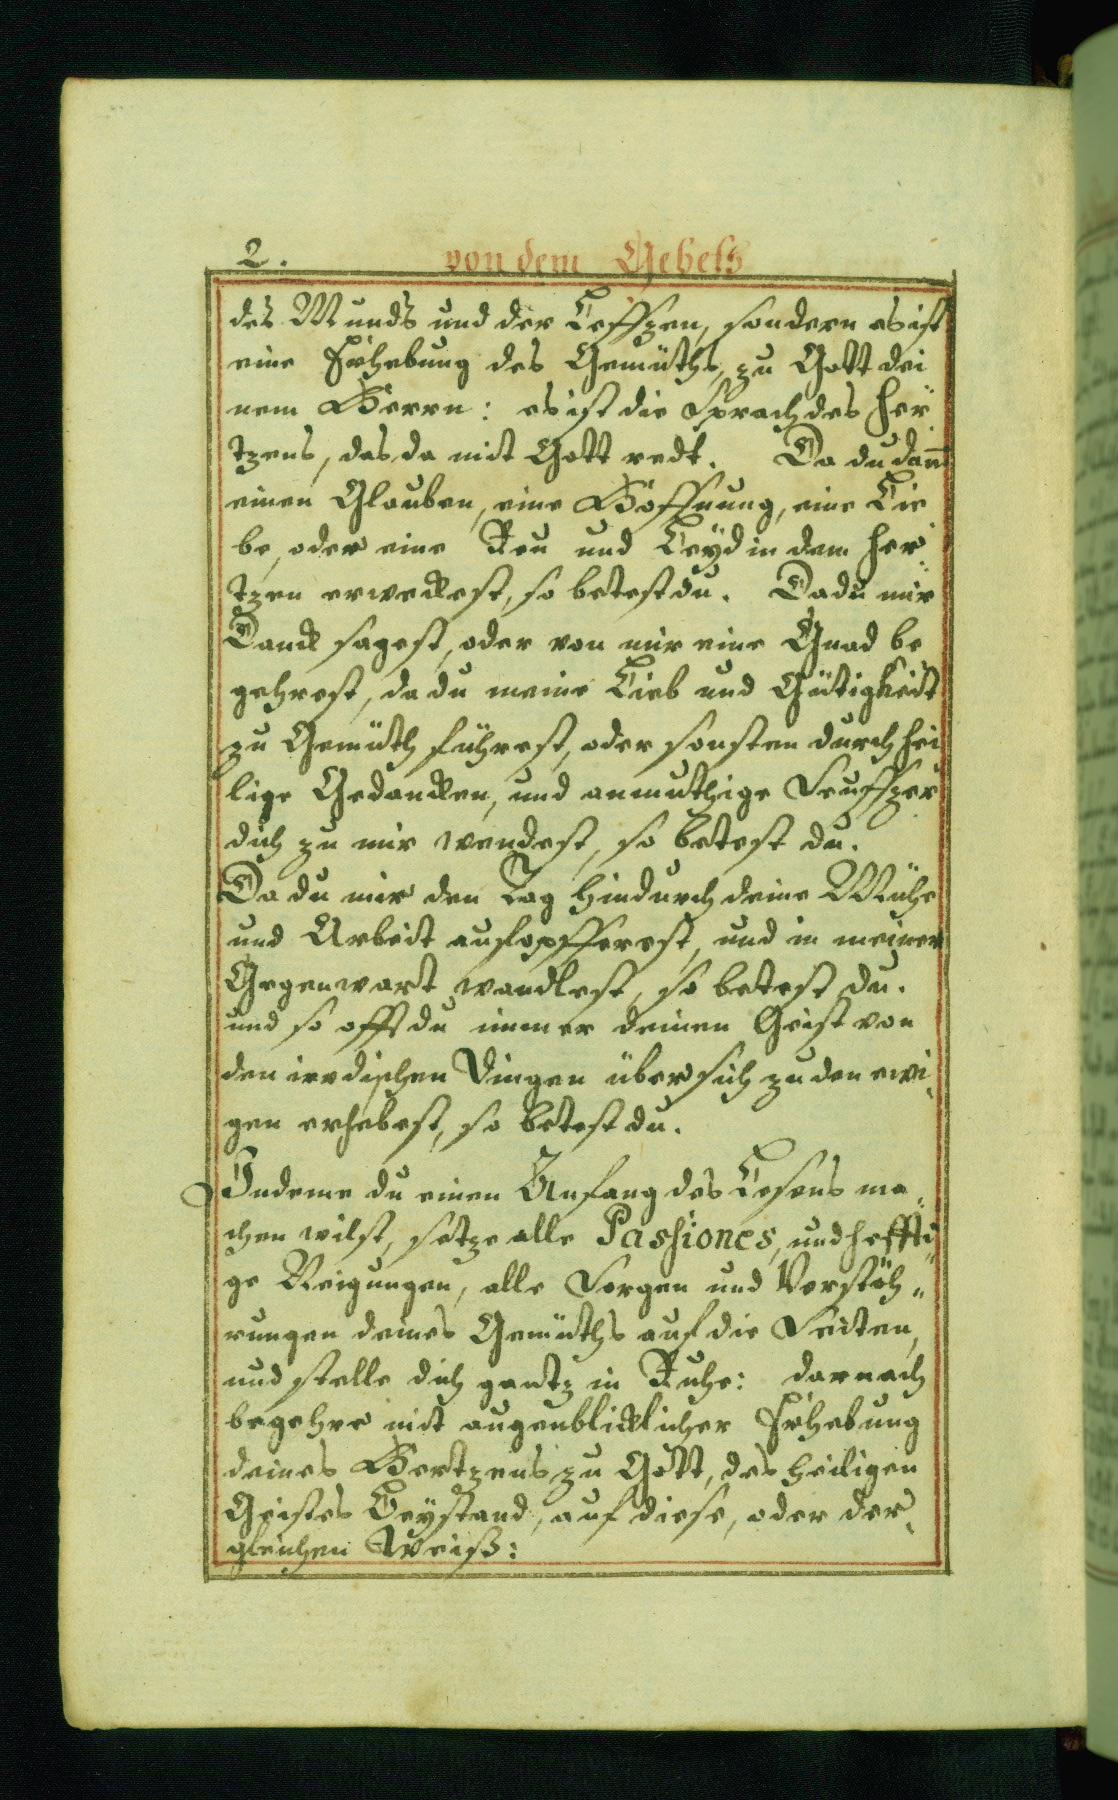 2. von dem Gebeth
des Munds und der Leffzen, sondern es ist
eine Erhebung des Gemüths, zu Gott dei
nem Herrn: es ist die Sprach des Her¨
tzens, das da mit Gott redt. Da du dan̄
einen Glauben, eine Hoffnung, eine Lie
be, oder eine Reu und Leyd in dem Her¨
tzen erweckest, so betest du. Da du mir
Danck sagest, oder von mir eine Gnad be
gehrest, da du meine Lieb und Gütigkeit
zu Gemüth führest, oder sonsten durch hei
lige Gedancken, und anmuthige Seuffzer
dich zu mir wendest, so betest du.
Da du mir den Tag hindurch deine Mühe
und Arbeit auffopfferest, und in meiner
Gegenwart wandlest, so betest du.
und so offt du immer deinen Geist von
den irrdischen Dingen über sich zu den ewi¨
gen erhebest, so betest du.
Indeme du einen Anfang des Lesens ma¨
chen wilst, setze alle Passiones, und heffti¨
ge Neigungen, alle Sorgen und Verstöh¨
rungen deines Gemüths auf die Seiten,
und stelle dich gantz in Ruhe: darnach
begehre mit augenblicklicher Erhebung
deines Hertzens zu Gott, des heiligen
Geistes Beystand, auf diese, oder der¨
gleichen Weiß: